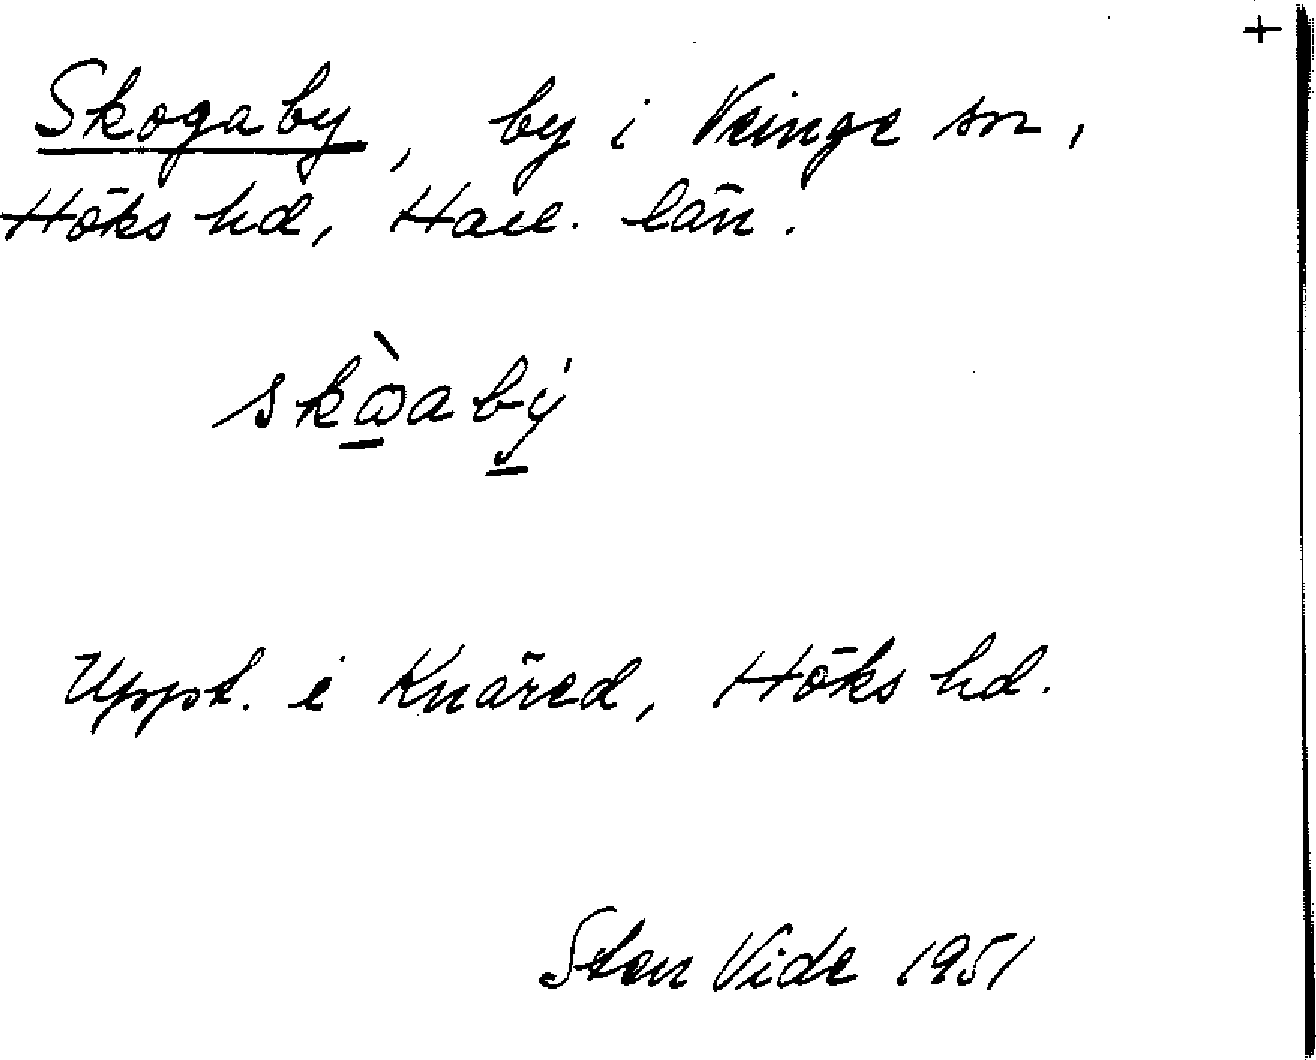 +
Skogaby, by i Veinge sn,
Höks hd, Hall. län.
Uppt. i Knäred, Höks hd.
Sten Vide 1951